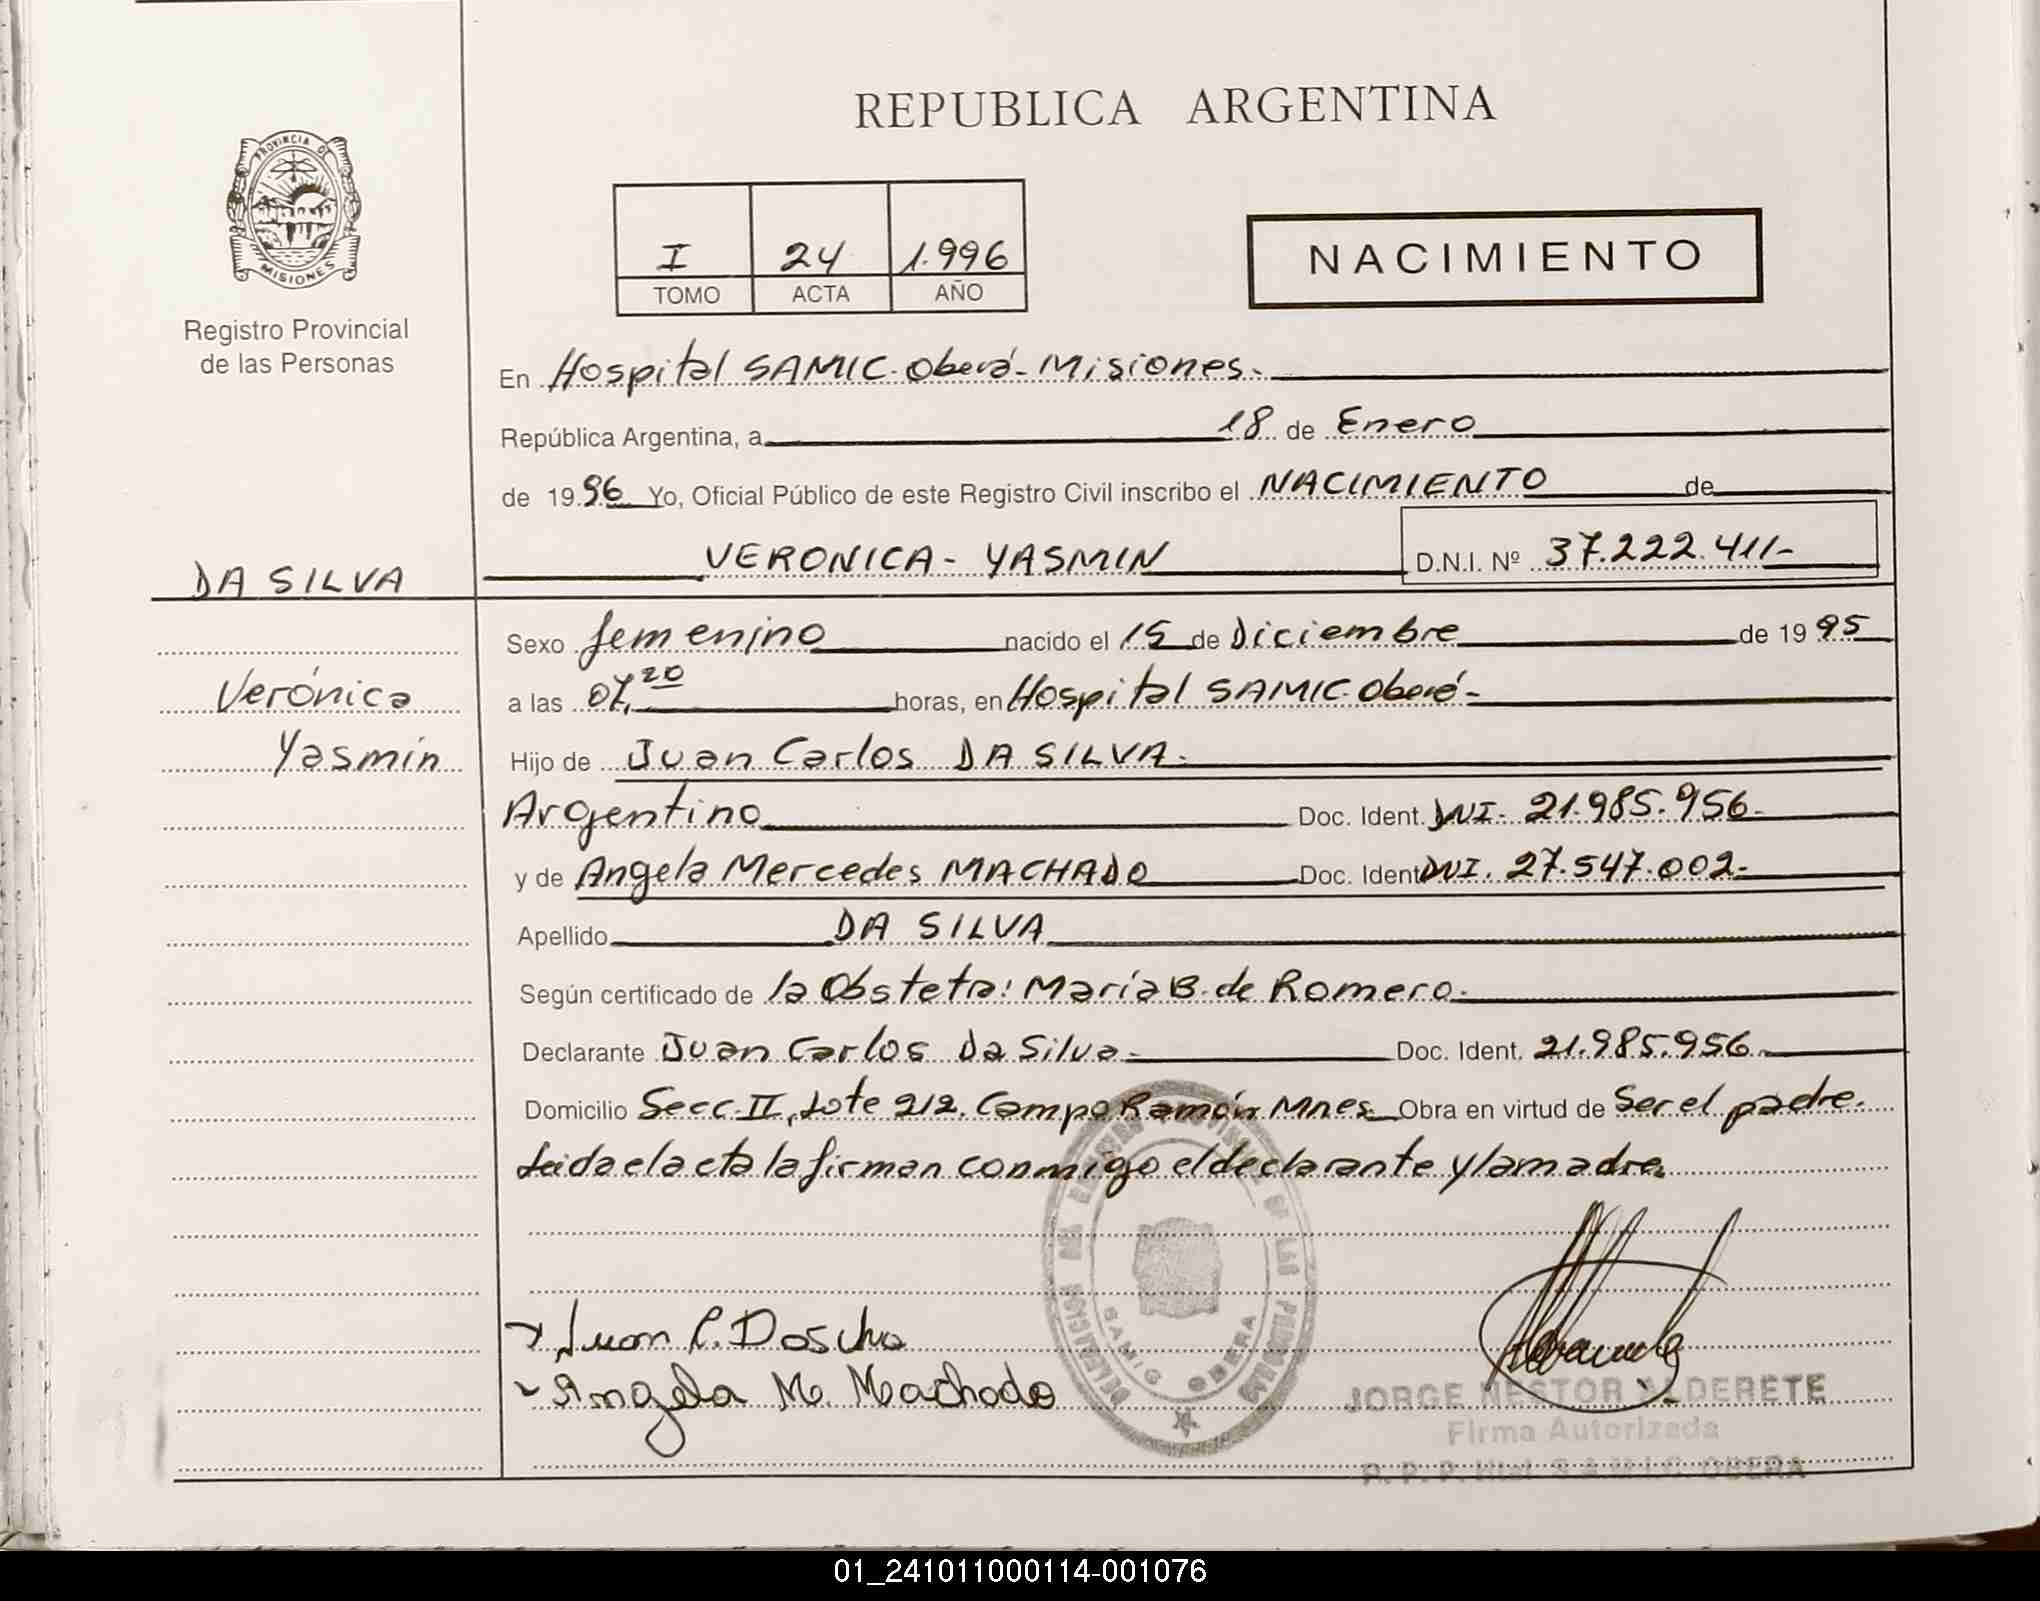 REPUBLICA ARGENTINA
PROVINCIA DE
MISIONES
Registro Provincial
de las Personas
I 24 1.996
TOMO ACTA AÑO
NACIMIENTO
En Hospital SAMIC. Oberá - Misiones.
República Argentina, a 18 de Enero
de 1996 Yo, Oficial Público de este Registro Civil inscribo el NACIMIENTO de
VERONICA - YASMIN D.N.I. Nº 37.222.411-
DA SILVA
Verónica
Yasmín
Sexo femenino nacido el 15 de Diciembre de 1995
a las 07,20 horas, en Hospital SAMIC. Oberá-
Hijo de Juan Carlos DA SILVA.
Argentino Doc. Ident. DNI- 21.985.956-
y de Angela Mercedes MACHADO Doc. Ident. DNI. 27.547.002-
Apellido DA SILVA
Según certificado de la Obsteta: María B. de Romero.
Declarante Juan Carlos Da Silva- Doc. Ident. 21.985.956-
Domicilio Secc. II, Lote 212. Campo Ramón Mnes Obra en virtud de Ser el padre.
Leida el acta la firman conmigo el declarante y la madre.
SAMIC OBERA
Juan C. Dasilva
Angela M. Machado
JORGE NESTOR ALDERETE
Firma Autorizada
R. P. P. Htal S.A.M.I.C. OBERA
01_241011000114-001076